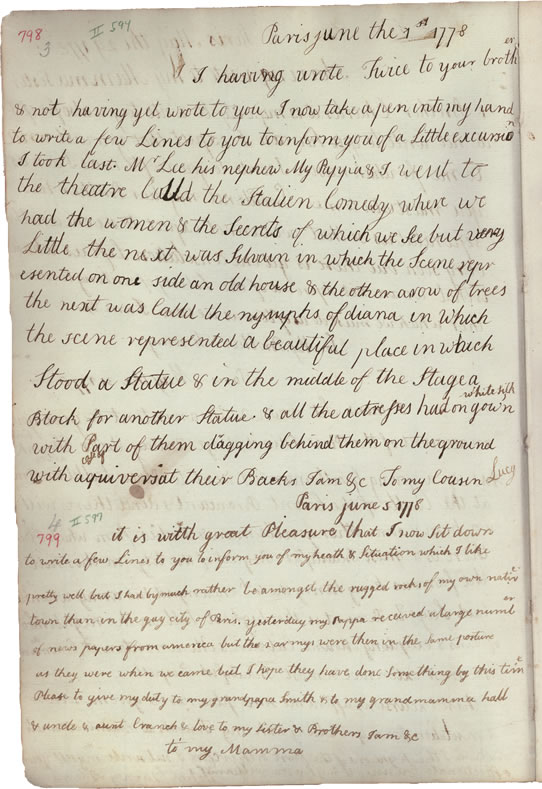 798 II 594
3
Paris june the 3st 1778
I having wrote. Twice to your brother
& not having yet wrote to you I now take a pen into my hand
to write a few Lines to you to inform you of a Little excursion
I took last. Mr Lee his nephew My Pappa & I went to
the theatre Calld the Italien Comedy where we
had the women & the Secrets of which we See but very
Little the next was Silvain in which the Scene repr
esented on one side an old house & the other a row of trees
the next was Calld the nymphs of diana in which
the scene represented a beautiful place in which
Stood a Statue & in the middle of the Stage a
Block for another Statue & all the actresses had on white silk gown
with Part of them dragging behind them on the ground
with a quiver at their Backs I am &c To my Cousin Lucy
Paris june 5 1778
4 II 597
799 it is with great Pleasure that I now Sit down
to write a few Lines to you to inform you of my heath & Situation which I like
pretty well but I had by much rather be amongst the rugged rocks of my own native
town than in the gay city of Paris. yesterday my Pappa received a large number
of news papers from america but the armys were then in the same posture
as they were when we came but I hope they have done Something by this time
Please to give my duty to my grandpapa Smith & to my grandmamma hall
& uncle & aunt Cranch & love to my Sister & Brothers I am &c
to my Mamma